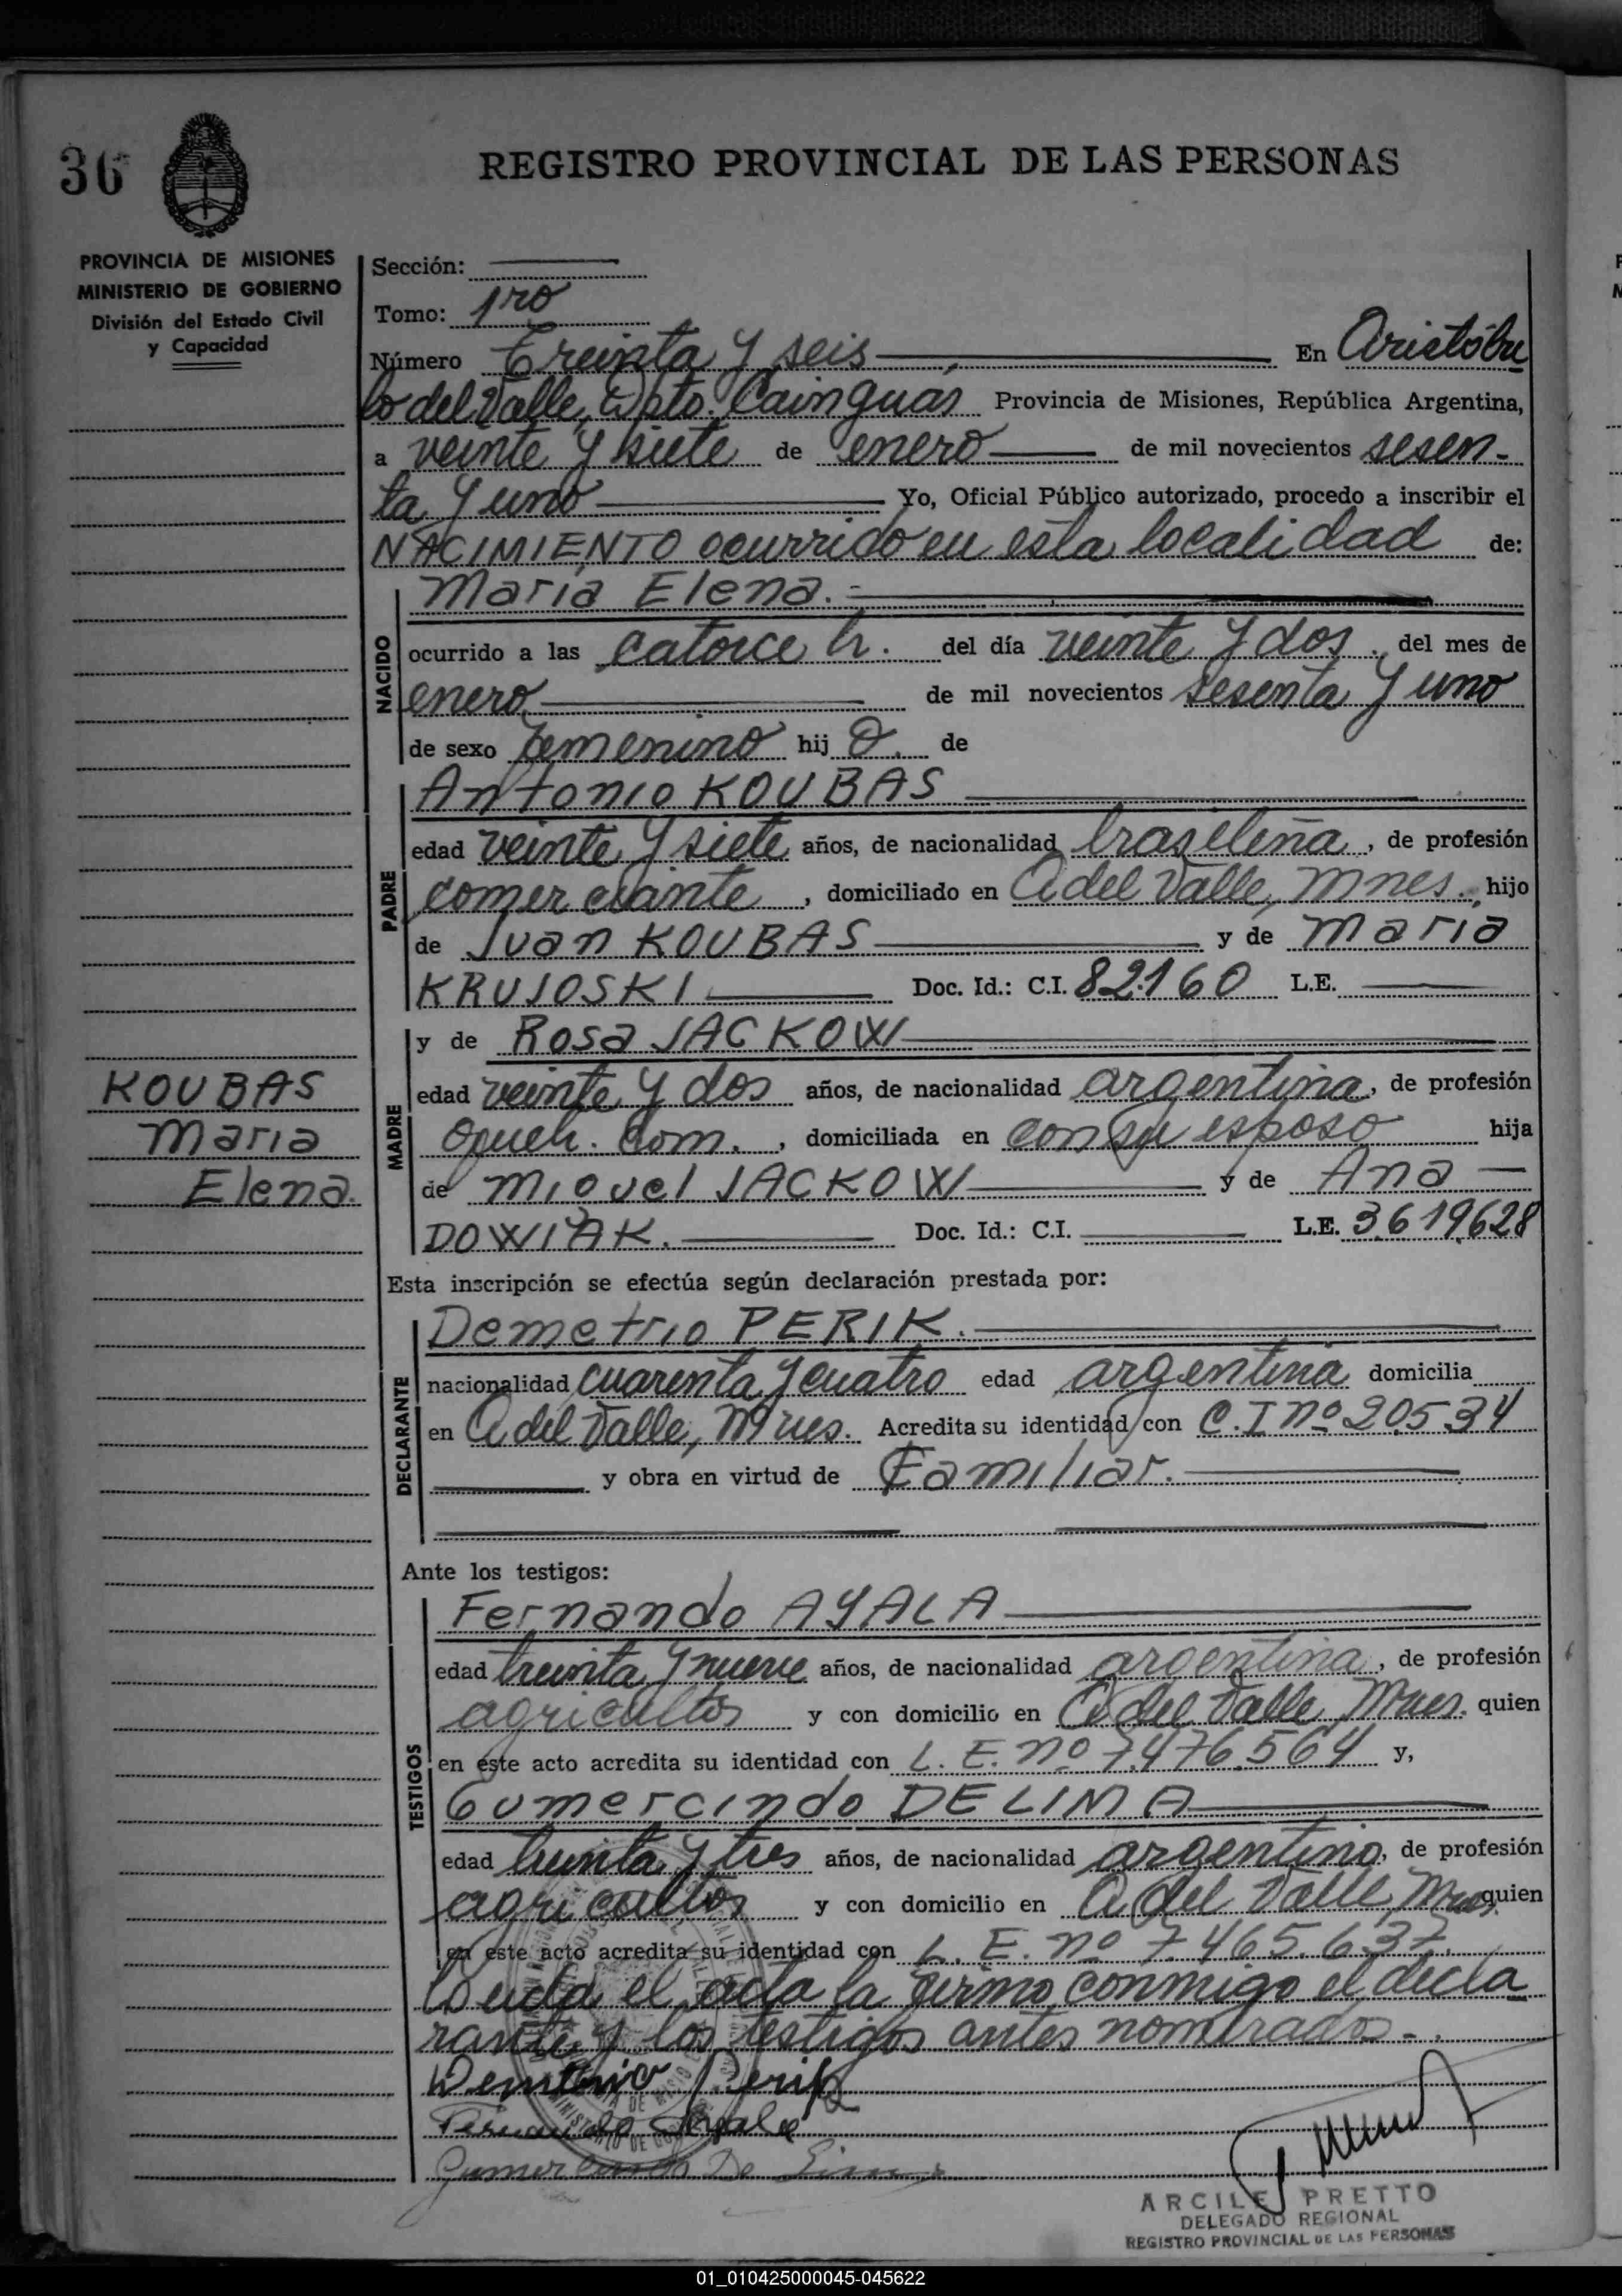 36
REGISTRO PROVINCIAL DE LAS PERSONAS
PROVINCIA DE MISIONES
MINISTERIO DE GOBIERNO
División del Estado Civil
y Capacidad
Sección:
Tomo: 1ro
Número Treinta y seis En Aristóbu
lo del Valle, Dpto. Cainguás Provincia de Misiones, República Argentina,
a veinte y siete de enero de mil novecientos sesen-
ta y uno Yo, Oficial Público autorizado, procedo a inscribir el
NACIMIENTO ocurrido en esta localidad de:
NACIDO
María Elena.-
ocurrido a las catorce h. del día veinte y dos, del mes de
enero de mil novecientos sesenta y uno
de sexo femenino hij a. de
PADRE
Antonio KOUBAS
edad veinte y siete años, de nacionalidad brasileña, de profesión
comerciante, domiciliado en A del Valle, Mnes. hijo
de Juan KOUBAS y de María
KRUJOSKI Doc. Id.: C.I. 82.160 L.E.
MADRE
y de Rosa JACKOW
edad veinte y dos años, de nacionalidad argentina, de profesión
Queh. Dom., domiciliada en con su esposo hija
de Miguel JACKOW y de Ana
DOWIAK. Doc. Id.: C.I. L.E. 3.619.628
KOUBAS
Maria
Elena.
Esta inscripción se efectúa según declaración prestada por:
DECLARANTE
Demetrio PERIK.
nacionalidad cuarenta y cuatro edad argentina domicilia
en A del Valle, Mnes. Acredita su identidad con C.I nº 20.534
y obra en virtud de Familiar.
Ante los testigos:
TESTIGOS
Fernando AYALA
edad treinta y nueve años, de nacionalidad argentina, de profesión
agricultor y con domicilio en A del Valle, Mnes. quien
en este acto acredita su identidad con L. E. nº 7.476.564 y,
Gumercindo DE LIMA
edad treinta y tres años, de nacionalidad argentino, de profesión
agricultor y con domicilio en A del Valle, Mnes. quien
en este acto acredita su identidad con L. E. nº 7.465.637.
Leida el acta la firmo conmigo el decla
rante y los testigos antes nombrados.-
Demetrio Perik
Fernando Ayala
Gumercindo De Lima
ARCILE PRETTO
DELEGADO REGIONAL
REGISTRO PROVINCIAL DE LAS PERSONAS
01_010425000045-045622